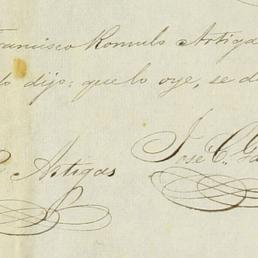 Francisco Romulo Artiga
dijo: que lo oye, se d
Artigas
José C. Ga